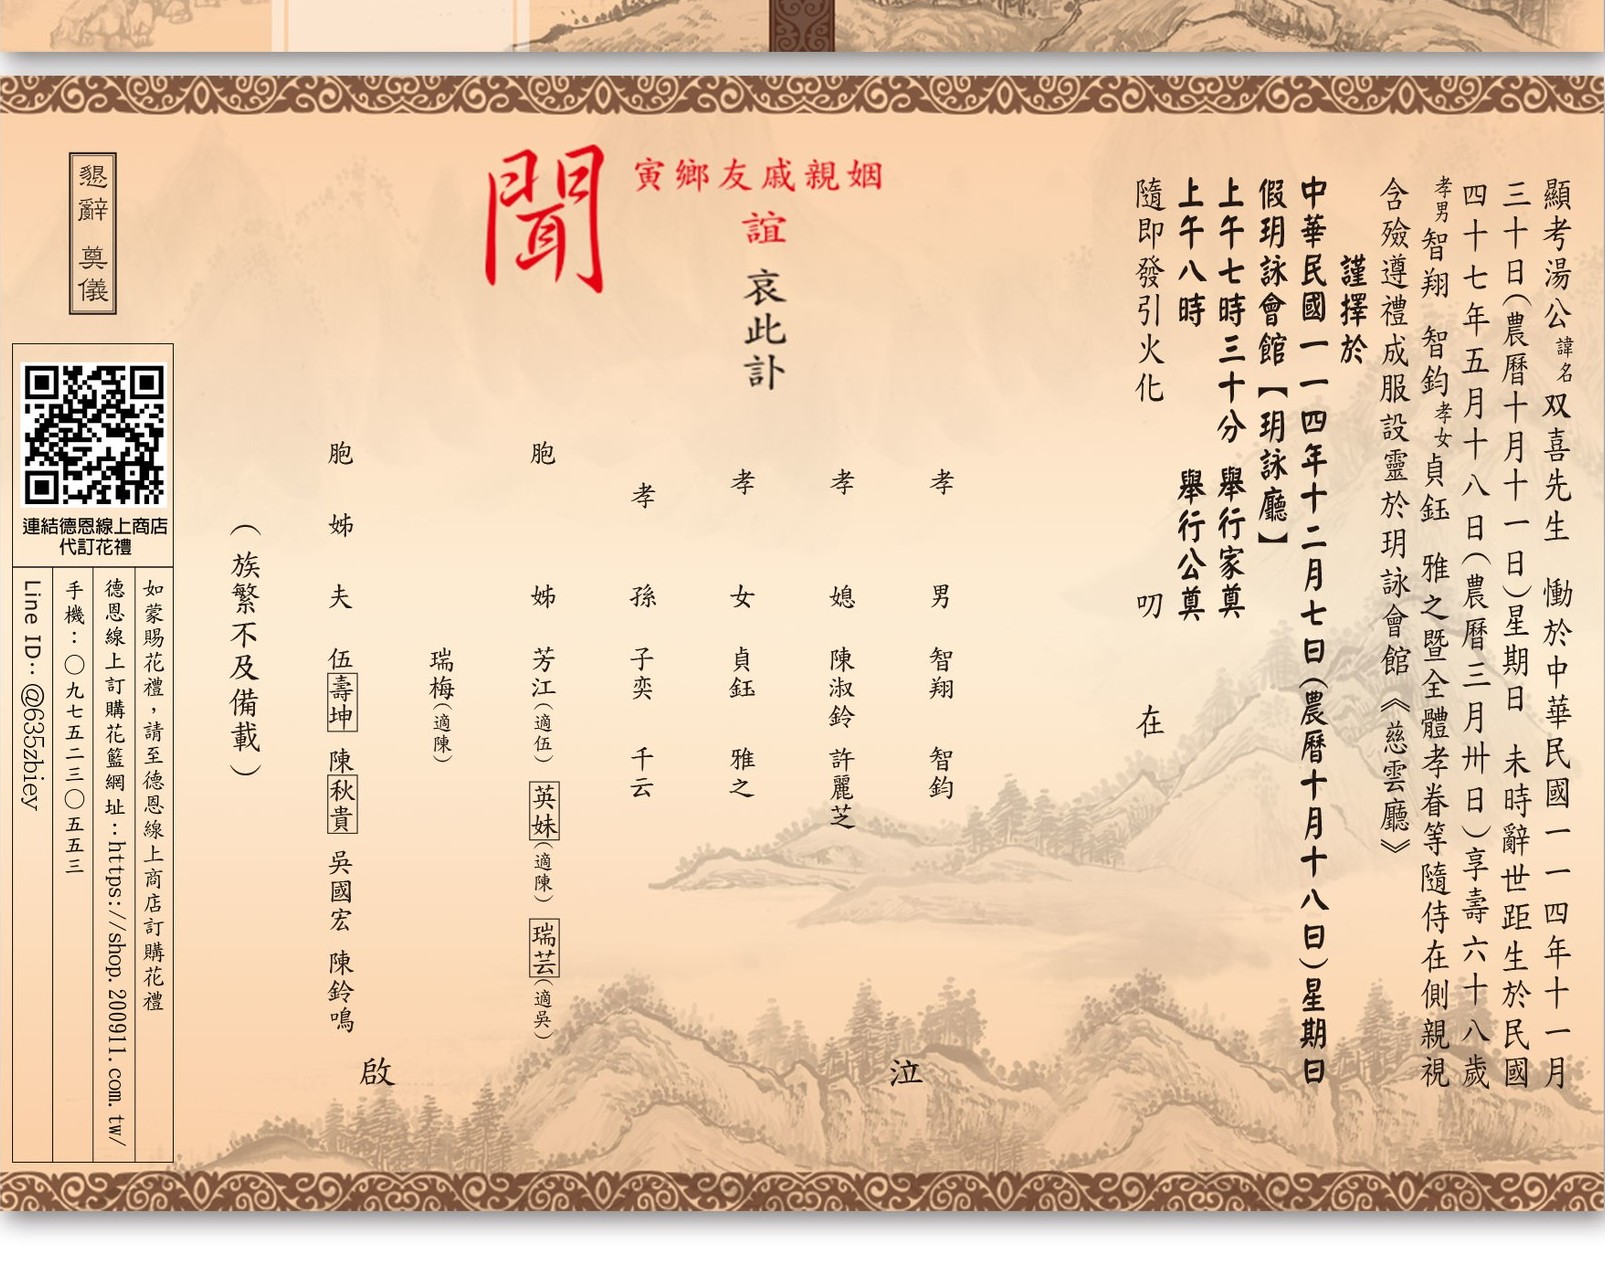 顯考湯公諱名双喜先生 慟於中華民國一一四年十一月
三十日(農曆十月十一日)星期日 未時辭世距生於民國
四十七年五月十八日(農曆三月卅日)享壽六十八歲
孝男智翔 智鈞孝女貞鈺 雅之暨全體孝眷等隨侍在側親視
含殮遵禮成服設靈於玥詠會館《慈雲廳》
謹擇於
中華民國一一四年十二月七日(農曆十月十八日)星期日
假玥詠會館【玥詠廳】
上午七時三十分 舉行家奠
上午八時 舉行公奠
隨即發引火化 叨 在
姻親戚友鄉寅
誼 哀此訃
聞
孝男 智翔 智鈞
泣
孝媳 陳淑鈴 許麗芝
孝女 貞鈺 雅之
孝孫 子奕 千云
胞姊 芳江(適伍) 英妹(適陳) 瑞芸(適吳)
瑞梅(適陳)
胞姊夫 伍壽坤 陳秋貴 吳國宏 陳鈴鳴
啟
(族繁不及備載)
懇辭 奠儀
連結德恩線上商店
代訂花禮
如蒙賜花禮,請至德恩線上商店訂購花禮
德恩線上訂購花籃網址:https://shop.200911.com.tw/
手機:〇九七五二三〇五五三
Line ID:@635zbiey